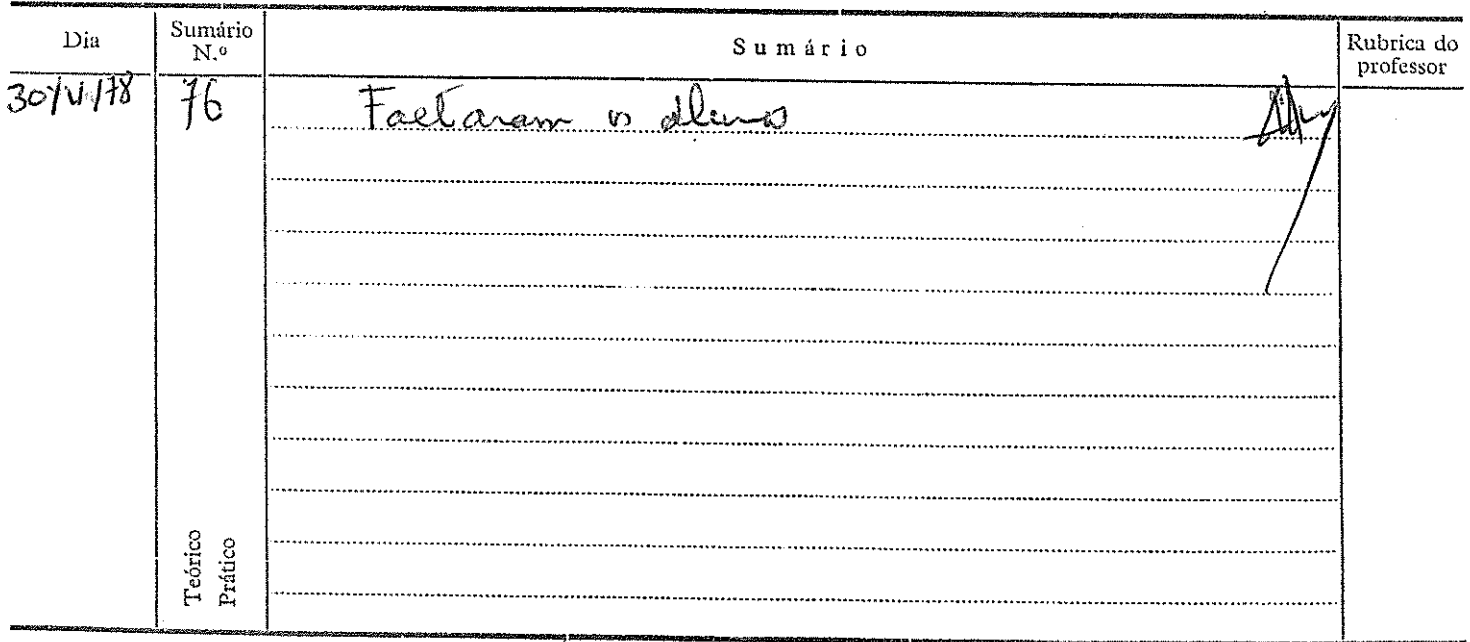 Dia
Sumário
N.º
Sumário
Rubrica do
professor
30/VI/78
76
Faltaram os alunos
Teórico
Prático